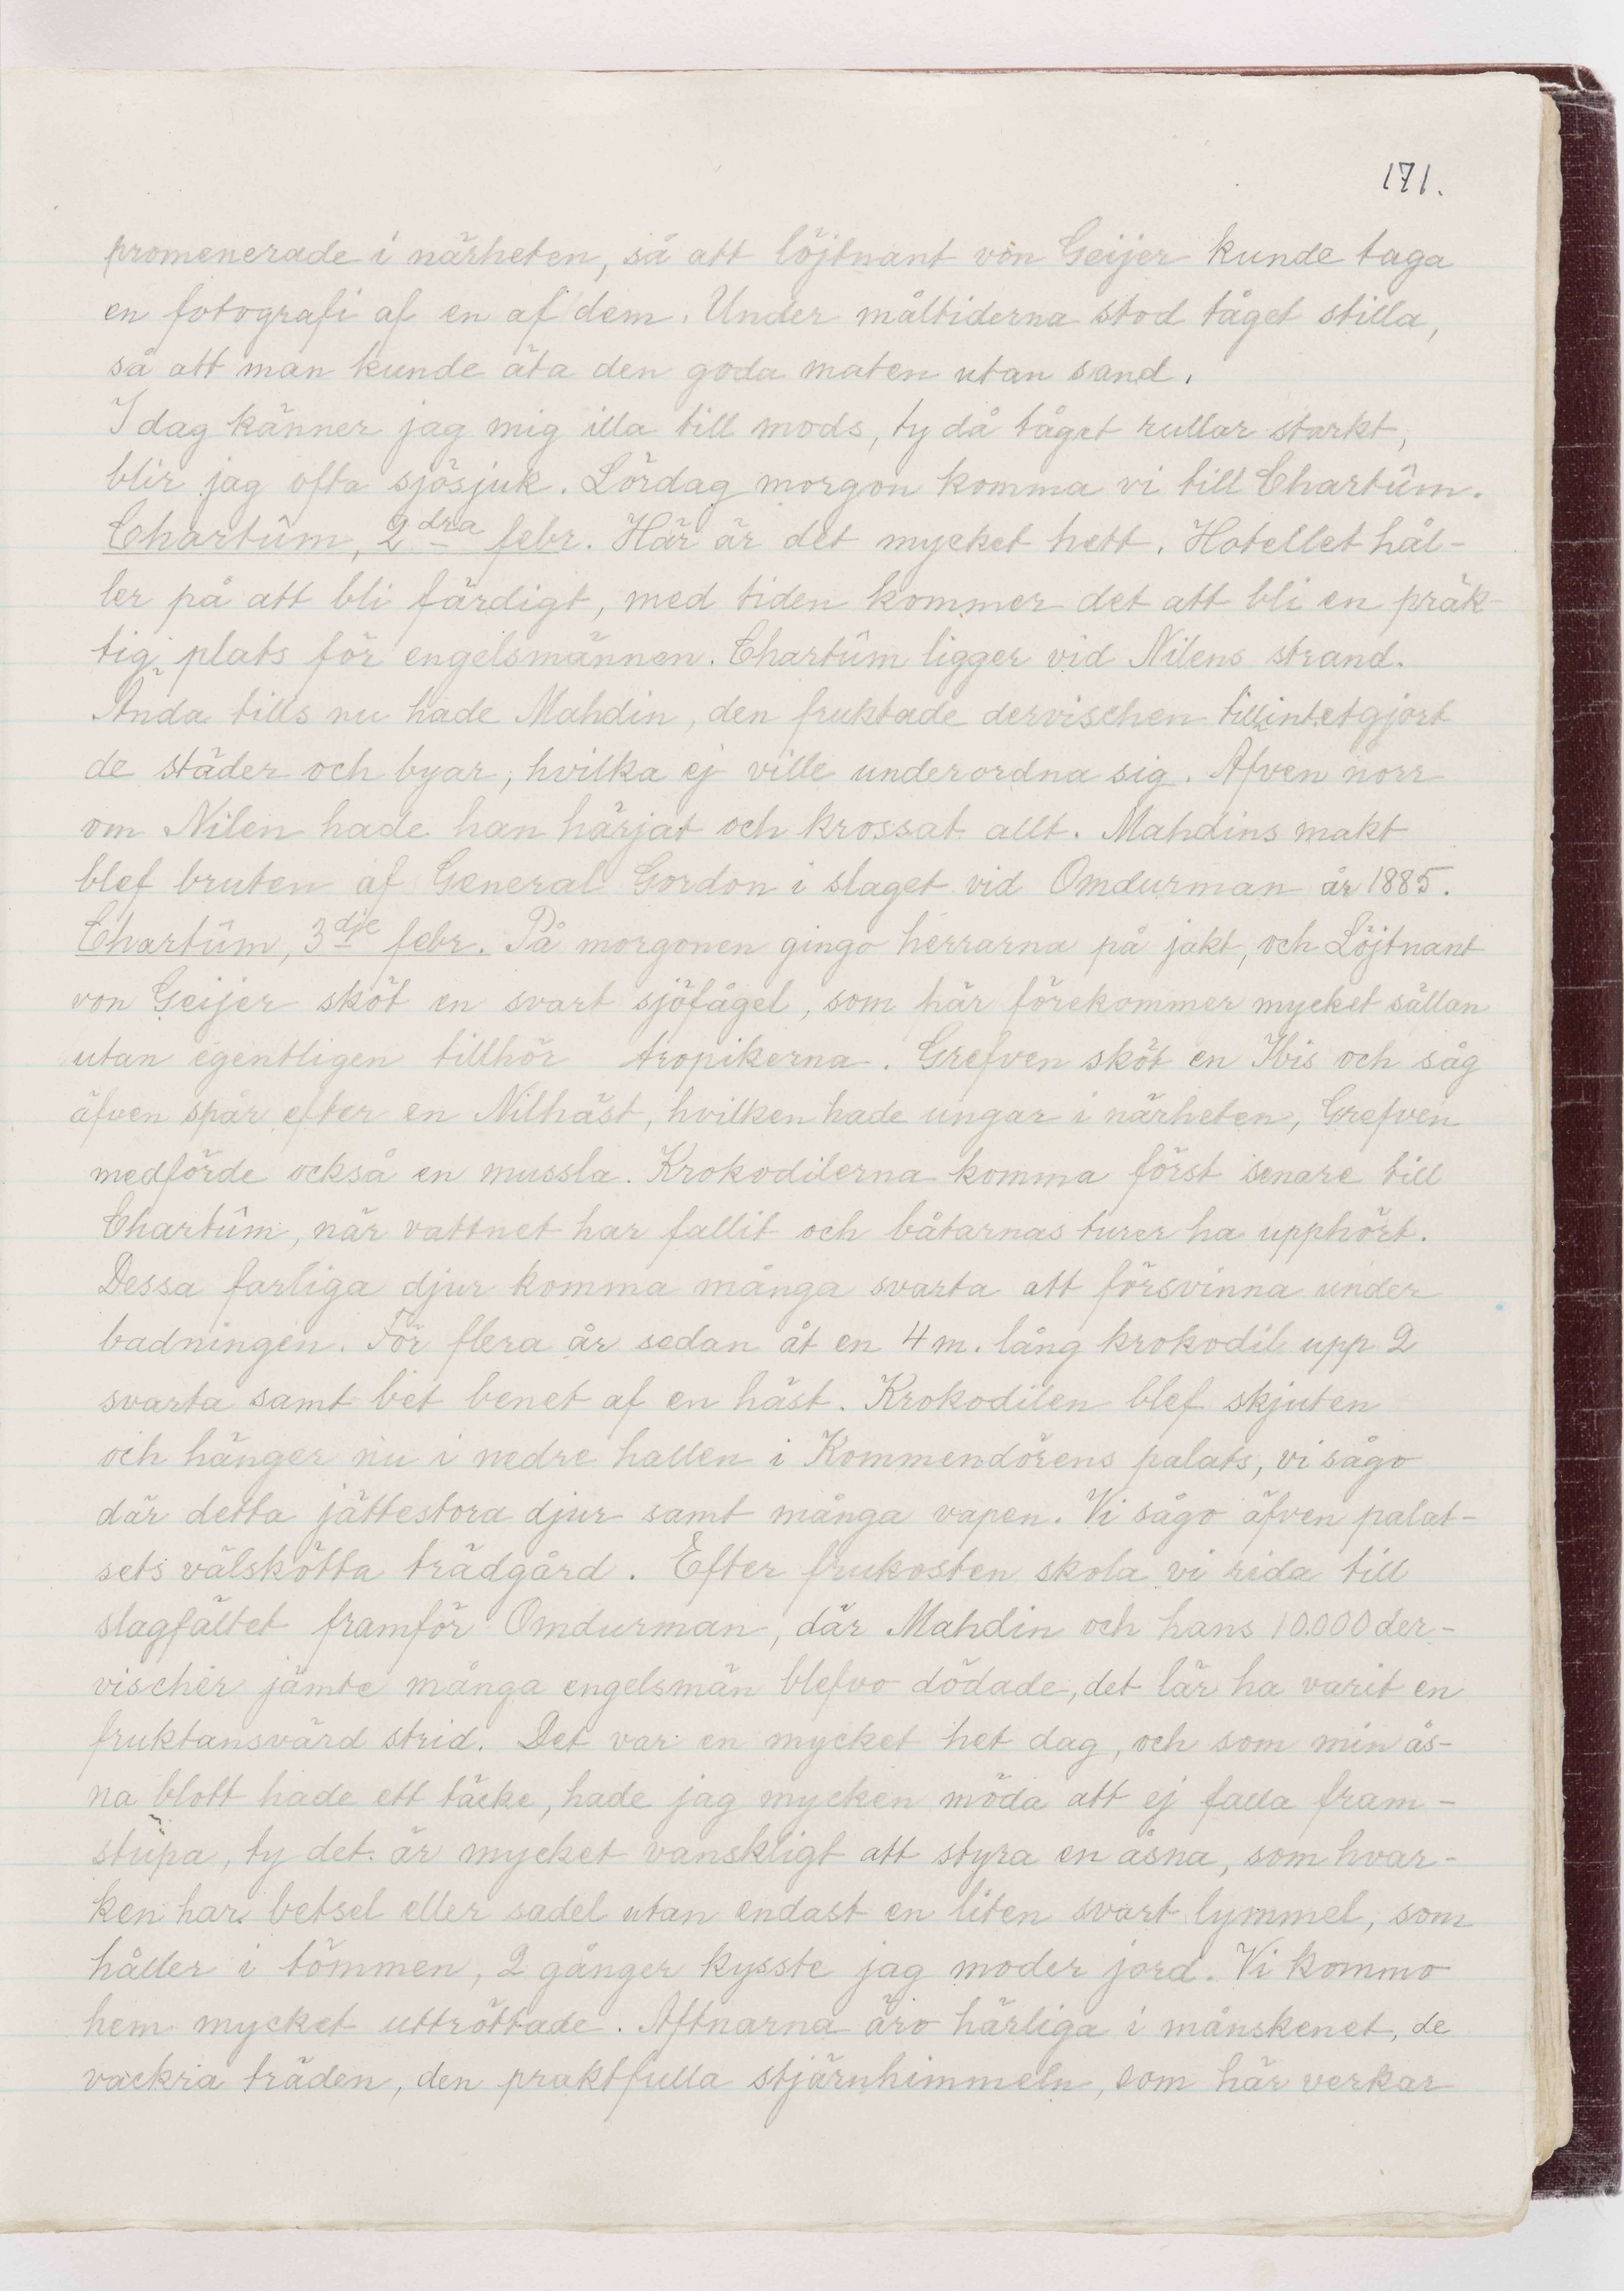 171.
promenerade i närheten, så att löjtnant von Geijer kunde taga
en fotografi af en af dem. Under måltiderna stod tåget stilla,
så att man kunde äta den goda maten utan sand.
I dag känner jag mig illa till mods, ty då tåget rullar starkt,
blir jag ofta sjösjuk. Lördag morgon komma vi till Chartûm.
Chartûm, 2dra febr. Här är det mycket hett. Hotellet hål-
ler på att bli färdigt, med tiden kommer det att bli en präk-
tig plats för engelsmännen. Chartûm ligger vid Nilens strand.
Ända tills nu hade Mahdin, den fruktade dervischen tillintetgjort
de städer och byar, hvilka ej ville underordna sig. Afven norr
om Nilen hade han härjat och krossat allt. Mahdins makt
blef bruten af General Gordon i slaget vid Omdurman år 1885.
Chartûm, 3dje febr. På morgonen gingo herrarna på jakt, och Löjtnant
von Geijer sköt en svart sjöfågel, som här förekommer mycket sällan
utan egentligen tillhör tropikerna. Grefven sköt en Ibis och såg
äfven spår efter en Nilhäst, hvilken hade ungar i närheten, Grefven
medförde också en mussla. Krokodilerna komma först senare till
Chartûm, när vattnet har fallit och båtarnas turer ha upphört.
Dessa farliga djur komma många svarta att försvinna under
badningen. För flera år sedan åt en 4 m. lång krokodil upp 2
svarta samt bet benet af en häst. Krokodilen blef skjuten
och hänger nu i nedre hallen i Kommendörens palats, vi sågo
där detta jättestora djur samt många vapen. Vi sågo äfven palat-
sets välskötta trädgård. Efter frukosten skola vi rida till
slagfältet framför Omdurman, där Mahdin och hans 10.000 der-
vischer jämte många engelsmän blefvo dödade, det lär ha varit en
fruktansvärd strid. Det var en mycket het dag, och som min ås-
na blott hade ett täcke, hade jag mycken möda att ej falla fram-
stupa, ty det är mycket vanskligt att styra en åsna, som hvar-
ken har betsel eller sadel utan endast en liten svart lymmel, som
håller i tömmen, 2 gånger kysste jag moder jord. Vi kommo
hem mycket uttröttade. Aftnarna äro härliga i månskenet, de
vackra träden, den praktfulla stjärnhimmeln, som här verkar